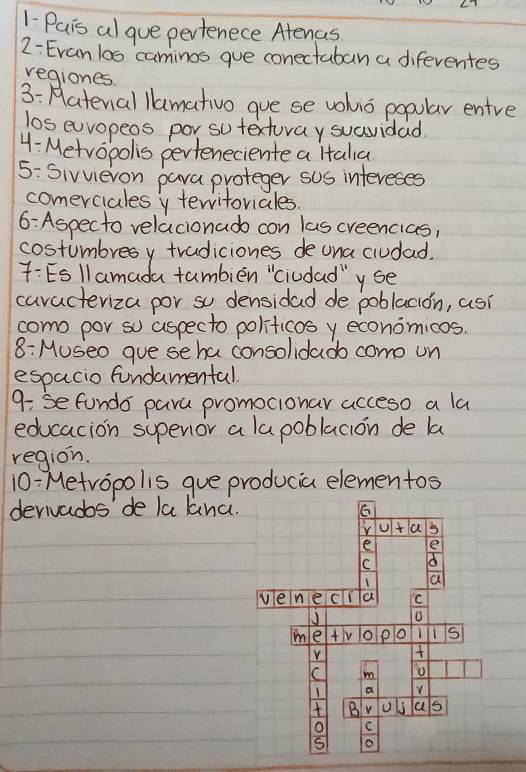 1- País al que pertenece Atenas.
2- Eran los caminos que conectaban a diferentes
regiones.
3- Material llamativo que se volvió popular entre
los europeos por su textura y suavidad.
4- Metrópolis perteneciente a Italia
5- Sirvieron para proteger sus intereses
comerciales y territoriales.
6- Aspecto relacionado con las creencias,
costumbres y tradiciones de una ciudad.
7- Es llamada también "ciudad" y se
caracteriza por su densidad de población, así
como por su aspecto políticos y económicos.
8- Museo que se ha consolidado como un
espacio fundamental.
9- Se fundó para promocionar acceso a la
educación superior a la población de la
región.
10- Metrópolis que producía elementos
derivados de la lana.
Grecia
rutas
seda
venecia
ejercitos
cultura
metropolis
marco
Brujas